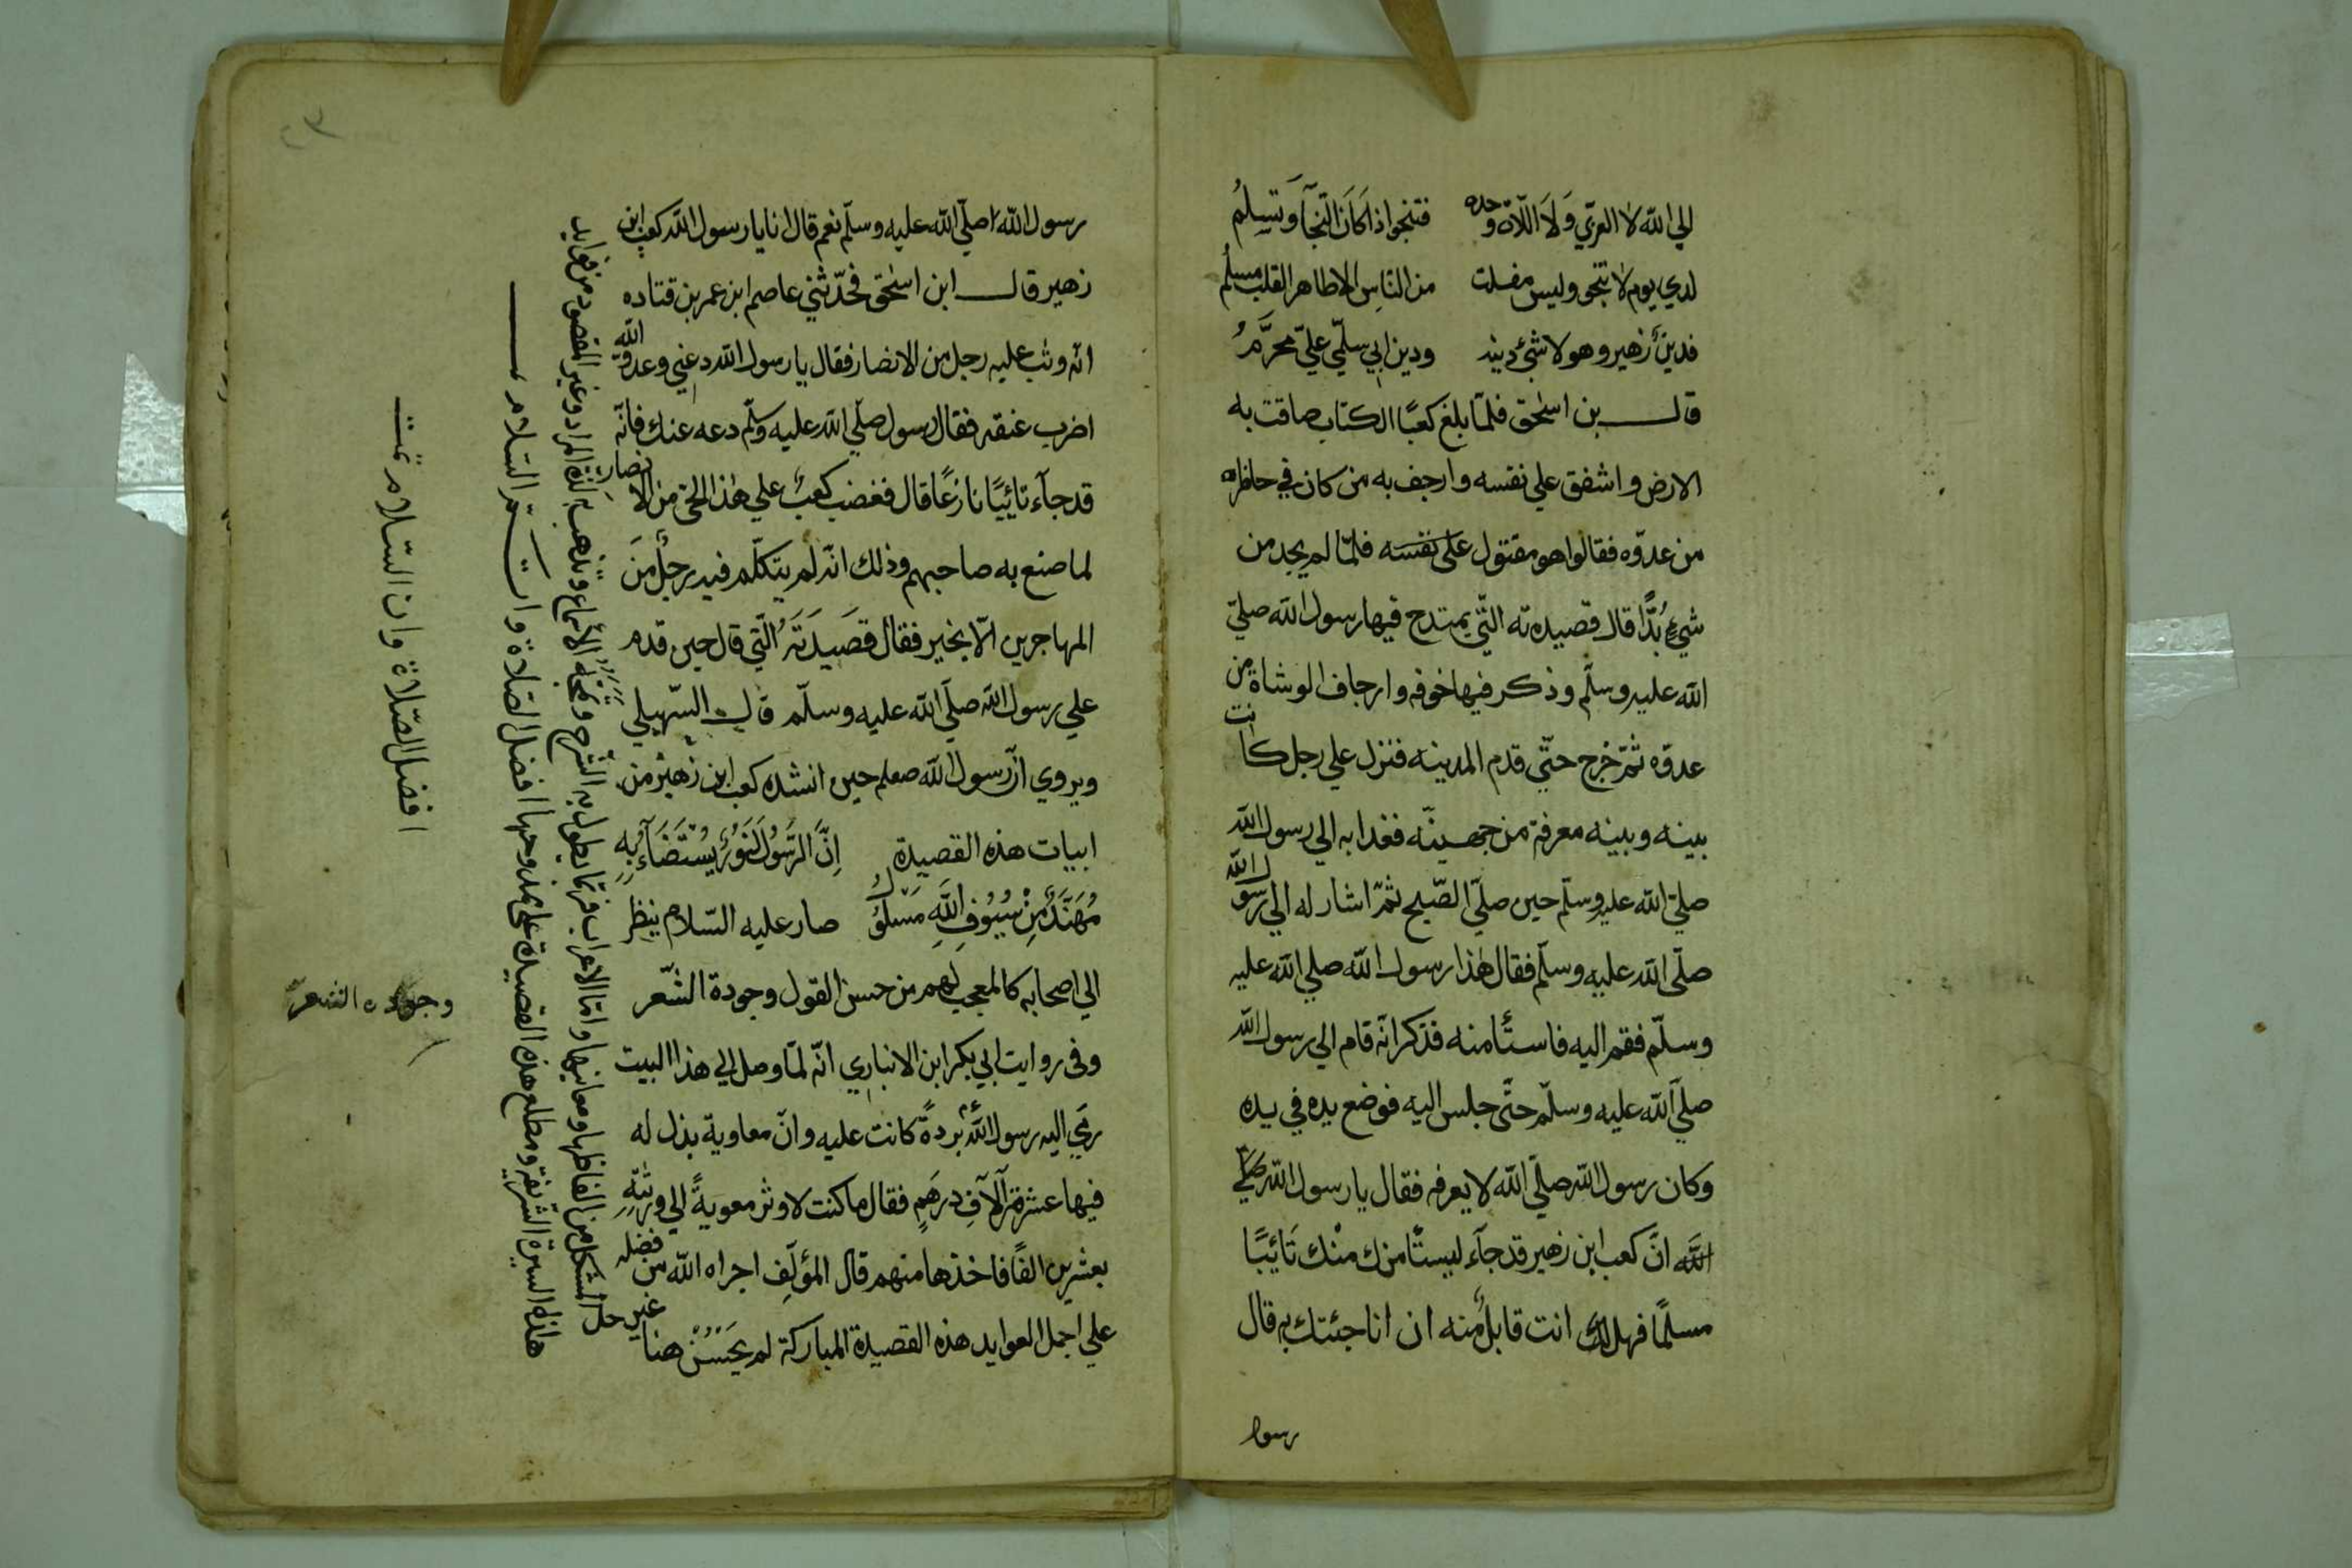 الي الله لا العزي وَلَا اللّاة وحده فتنجوا اذا كَانَ النّجآ وَتَسِلمُ
لدي يوم لا تنجي وليس مفلت من النّاسِ الا طاهر القلب مسلمُ
فدينُ زهير وهو لا شيءُ دينه ودين ابي سلمّي عليّ محرَّمُ
قال بن اسٰحق فلمّا بلغ كعبًا الكتاب ضاقت به
الارض واشفق علي نفسه وارجف به من كان في حاظره
من عدوّه فقالوا هو مقتول على نفسه فلمّا لم يجد من
شيءٍ بُدًّا قال قصيدته الّتي يمتدح فيها رسول الله صلّي
الله عليه وسلّم وذكر فيها خوفه وارجاف الوشاة من
عدوّه ثمّ خرج حتّي قدم المدينه فنزل علي رجل كانت
بينه وبينه معرفة من جهينّه فغدا به الي رسول الله
صليّ الله عليه وسلّم حين صليّ الصّبح ثمّ اشار له الي رسول الله
صلّى الله عليه وسلّم فقال هٰذا رسول الله صلي الله عليه
وسلّم فقم اليه فاستأمنه فذكر انّه قام الي رسول الله
صلّي الله عليه وسلّم حتّى جلس اليه فوضع يده في يده
وكان رسول الله صلّي الله لا يعرفه فقال يا رسول الله صلّي
الله انَّ كعب ابن زهير قد جآء ليستأمن منْك تَائبًا
مسلمًا فهل انت قابلُ منه ان انا جئتك به قال
رسول
رسول الله صلّي الله عليه وسلّم نعم قال انا يا رسول الله كعب ابن
زهير قال ابن اسٰحق فحدّثني عاصم ابن عمر بن قتاده
انّه وثب عليه رجل من الانصار فقال يا رسول الله دعني وعدوّ الله
اضرب عنقه فقال رسول صلّي الله عليه وسلّم دعه عنك فانّه
قد جآء تائيبًا نازعًا قال فغضب كعبُ علي هٰذا الحيّ من الانصار
لما صنع به صاحبهم وذلك انّه لم يتكلّم فيه رجلُ منَ
المهاجرين الّا بخير فقال قصَيدَتَهُ الّتي قال حين قدم
علي رسول الله صلّي الله عليه وسلّم قال السّهيلي
ويروي انّ رسول الله صعلم حين انشده كعب ابن زهيْر من
ابيات هذه القصيدة اِنَّ الرَّسُولَ لَنوُرُ يُسْتَضَآءُ بِهِ
مُهَنَّدُ مِنْ سُيُوُفِ اللهِ مَسْلوُلُ صار عليه السّلام ينظر
الي اصحابه كالمعجب لهم من حسن القول وجودة الشّعر
وفى روايت ابي بكر ابن الانباري انّه لمّا وصل الي هذا البيت
رمي اليه رسول اللهُ بْردةً كانت عليه وانّ معاوية بذل له
فيها عشرة آلافِ درهَمٍ فقال ما كنت لاوثر معويةً الي ورثتهِ
بعشرين الفًا فاخذها منهم قال المؤلّف اجراه الله من فضله
علي اجمل العوايد هذه القصيدة المباركة لم يحَسُنْ هنا
غير حل المشكل من الفاظها ومعانيها وامّا الاعراب فربّما يطول به الشّرح وتمجّه الأسماع ويذهب به لذة المراد وغير المقصود من فوايد
هاذه السيرة الشّريفة ومطلع هذه القصيدة علي محمّد افضل الصّلاة والسّلام
افضل الصّلاة وان السّلام تمت
وجوده الشعر